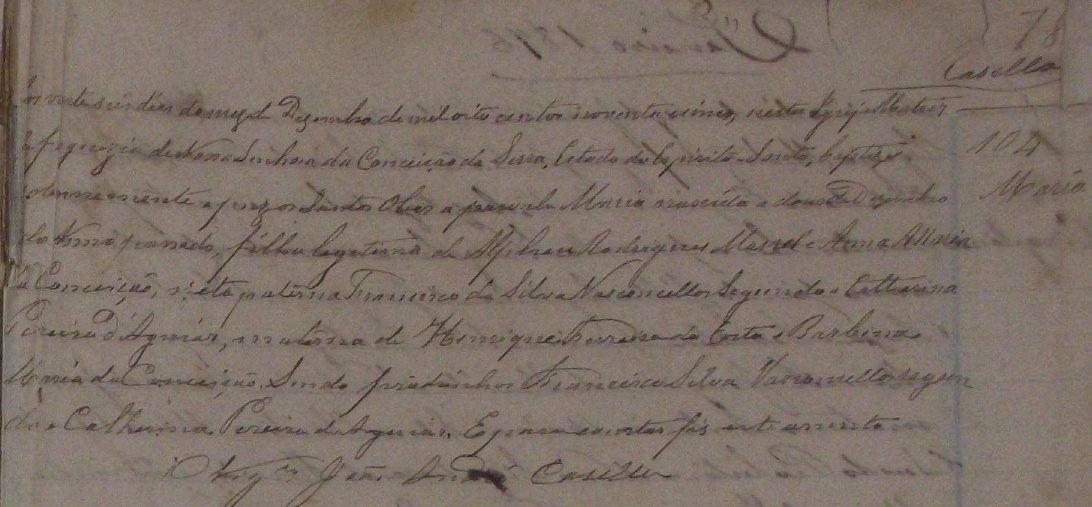 78
Casella
Aos vinte seis dias do mez de Dezembro de mil oito centos noventa cinco, nesta Igreja Matriz
da freguezia de Nossa Senhora da Conceição da Serra, Estado do Espirito-Santo, baptizei
solemnemente e puz os Santos Oleos a parvula Maria nascida a dous de Dezembro
do Anno passado, filha legitima de Rodrigues e Anna Maria
da Conceição, neta paterna Francisco da Silva Vasconcellos Segundo e Catharina
Pereira d'Aguiar, materna de Henrique Ferreira da Costa e Barbina
Maria da Conceição. Sendo padrinhos Francisco Silva Vasconcellos segun
do e Catharina Pereira de Aguiar. E para constar fis este assento
O Vig.ro João André Casella
104
Maria